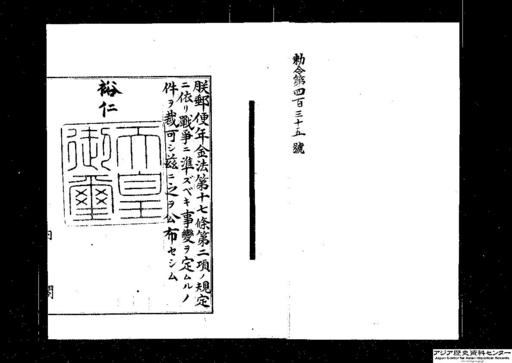 勅令第四百三十五號
朕郵便年金法第十七條第二項ノ規定
ニ依リ戰爭ニ準ズベキ事變ヲ定ムルノ
件ヲ裁可シ茲ニ之ヲ公布セシム
裕仁
天皇
御璽
内閣
アジア歴史資料センター
Japan Center for Asian Historical Records